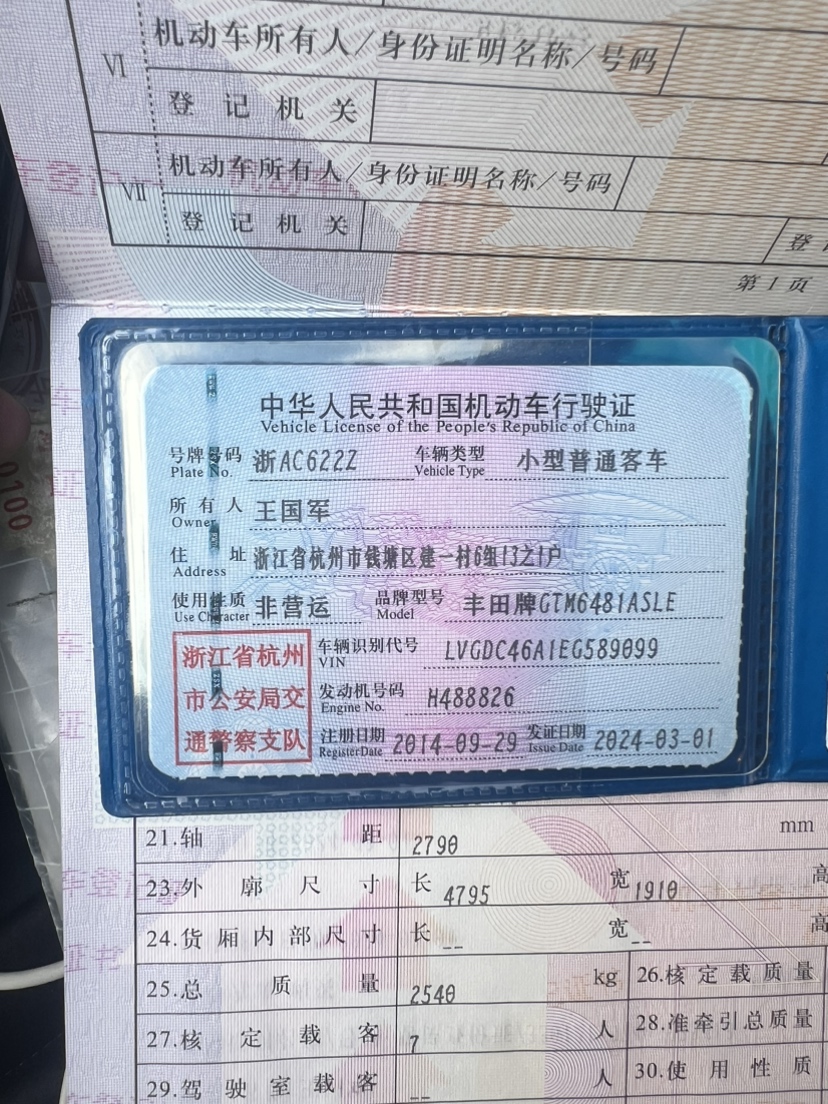 VI
机动车所有人/身份证明名称/号码
登记机关
VII
机动车所有人/身份证明名称/号码
登记机关
登
第1页
中华人民共和国机动车行驶证
Vehicle License of the People's Republic of China
号牌号码 浙AC622Z 车辆类型 小型普通客车
Plate No. Vehicle Type
所有人 王国军
Owner
住址 浙江省杭州市钱塘区建一村6组13之1户
Address
使用性质 非营运 品牌型号 丰田牌GTM6481ASLE
Use Character Model
浙江省杭州
市公安局交
通警察支队
车辆识别代号 LVGDC46A1EG589099
VIN
发动机号码 H488826
Engine No.
注册日期 2014-09-29 发证日期 2024-03-01
Register Date Issue Date
21.轴距 2790 mm
23.外廓尺寸 长 4795 宽 1910 高
24.货厢内部尺寸 长 -- 宽 -- 高
25.总质量 2540 kg 26.核定载质量
27.核定载客 7 人 28.准牵引总质量
29.驾驶室载客 -- 人 30.使用性质